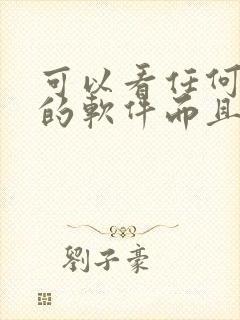 可以看任何
的軟件而且
劉子豪